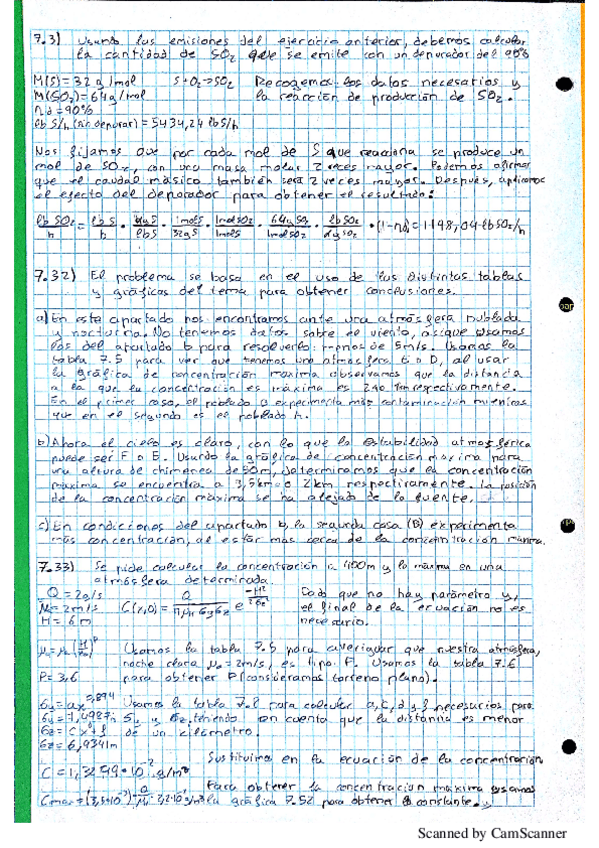 7.31) Usando las emisiones del ejercicio anterior, debemos calcular
la cantidad de SO₂ que se emite con un depurador del 90%
M(S)=32 g/mol S+O₂→SO₂ Recogemos los datos necesarios y
M(SO₂)=64g/mol la reacción de producción de SO₂.
ηd=90%
lb S/h (sin depurar)=5434,24 lbS/h
Nos fijamos que por cada mol de S que reacciona se produce un
mol de SO₂, con una masa molar 2 veces mayor. Podemos afirmar
que el caudal másico también será 2 veces mayor. Después, aplicamos
el efecto del depurador para obtener el resultado:
lb SO₂/h = lb S/h · kg S/lb S · 1mol S/32g S · 1mol SO₂/1mol S · 64g SO₂/1mol SO₂ · lb SO₂/kg SO₂ · (1-ηd)=1198,04 lb SO₂/h
7.32) El problema se basa en el uso de las distintas tablas
y gráficas del tema para obtener conclusiones.
a) En este apartado nos encontramos ante una atmósfera nublada
y nocturna. No tenemos datos sobre el viento, así que usamos
los del apartado b para resolverlo: menos de 5m/s. Usamos la
tabla 7.5 para ver que tenemos una atmósfera E o D, al usar
la gráfica de concentración maxima observamos que la distancia
a la que la concentración es máxima es respectivamente.
En el primer caso, el poblado B experimenta más contaminación mientras
que en el segundo es el poblado A.
b) Ahora el cielo es claro, con lo que la estabilidad atmosférica
puede ser F o E. Usando la gráfica de concentración maxima para
una altura de chimenea de 50m, determinamos que la concentración
maxima se encuentra a 3,5km o 2km respectivamente. La posición
de la concentración máxima se ha alejado de la fuente.
c) En condiciones del apartado b, la segunda casa (B) experimenta
más concentración, al estar más cerca de la concentración máxima.
7.33) Se pide calcular la concentración a 400m y la máxima en una
atmósfera determinada.
Q = 2g/s Dado que no hay parámetro y,
= 2m/s C(x,0) = Q/(πμH σy σz) e^(-H²/2σz²) el final de la ecuación no es
H = 6m necesario.
Usamos la tabla 7.5 para averiguar que nuestra atmósfera,
noche clara = 2m/s, es tipo F. Usamos la tabla 7.6
P= 3,6 para obtener P (consideramos terreno plano).
σy=ax^0,894 Usamos la tabla 7.8 para calcular a, c, d y f necesarios para
σy= σy y σz teniendo en cuenta que la distancia es menor
σz=cx^d+f de un kilómetro.
σz=6,9341m
Sustituimos en la ecuación de la concentración
C=1,3299·10⁻² g/m³
Para obtener la concentración maxima usamos
la gráfica 7.52 para obtener constante. y
Scanned by CamScanner